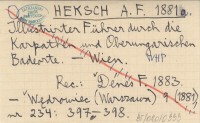 HEKSCH A. F. 1881a.
Illustrirter Führer durch die
Karpathen und Oberungarischen
Badeorte. — Wien.
Rec.: Dénes F 1883
— "Wędrowiec" (Warszawa) 9 (1881)
nr 234: 397–398.